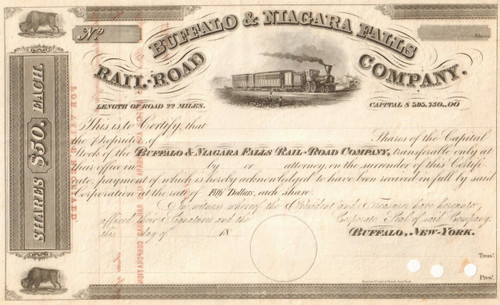 No
BUFFALO & NIAGARA FALLS
RAIL-ROAD COMPANY.
LENGTH OF ROAD 22 MILES. CAPITAL $
SHARES $50, EACH.
This is to Certify, that
the Proprietor of Shares of the Capital
Stock of the BUFFALO & NIAGARA FALLS RAIL-ROAD COMPANY, transferable only at
their office in by or attorney on the surrender of this Certifi-
cate, payment of which is hereby acknowledged to have been received in full by said
Corporation at the rate of Fifty Dollars, each share.
In witness whereof the President and Treasurer have hereunto
affixed their Signatures and the Corporate Seal of said Company
this day of 18
BUFFALO, NEW-YORK.
Treas.
Pres.